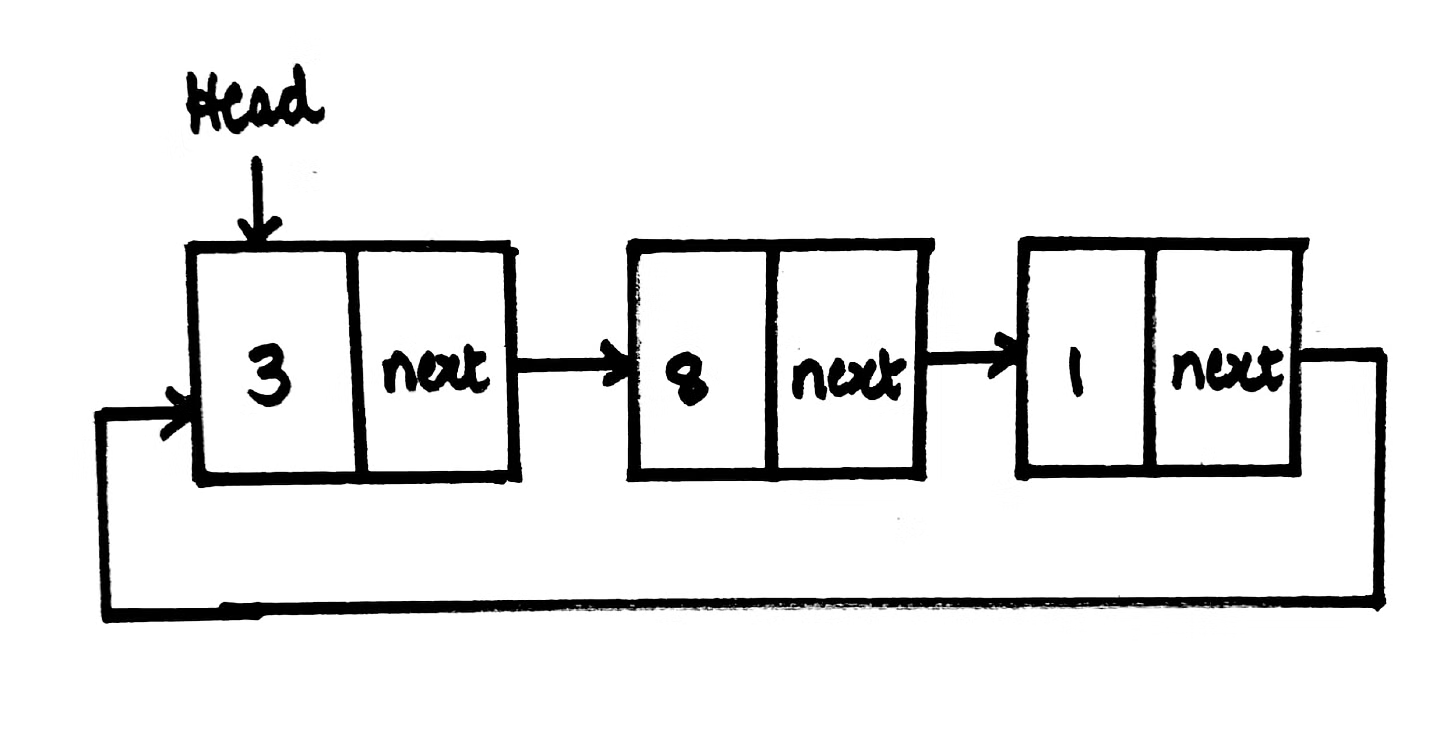 Head
3 next 8 next 1 next